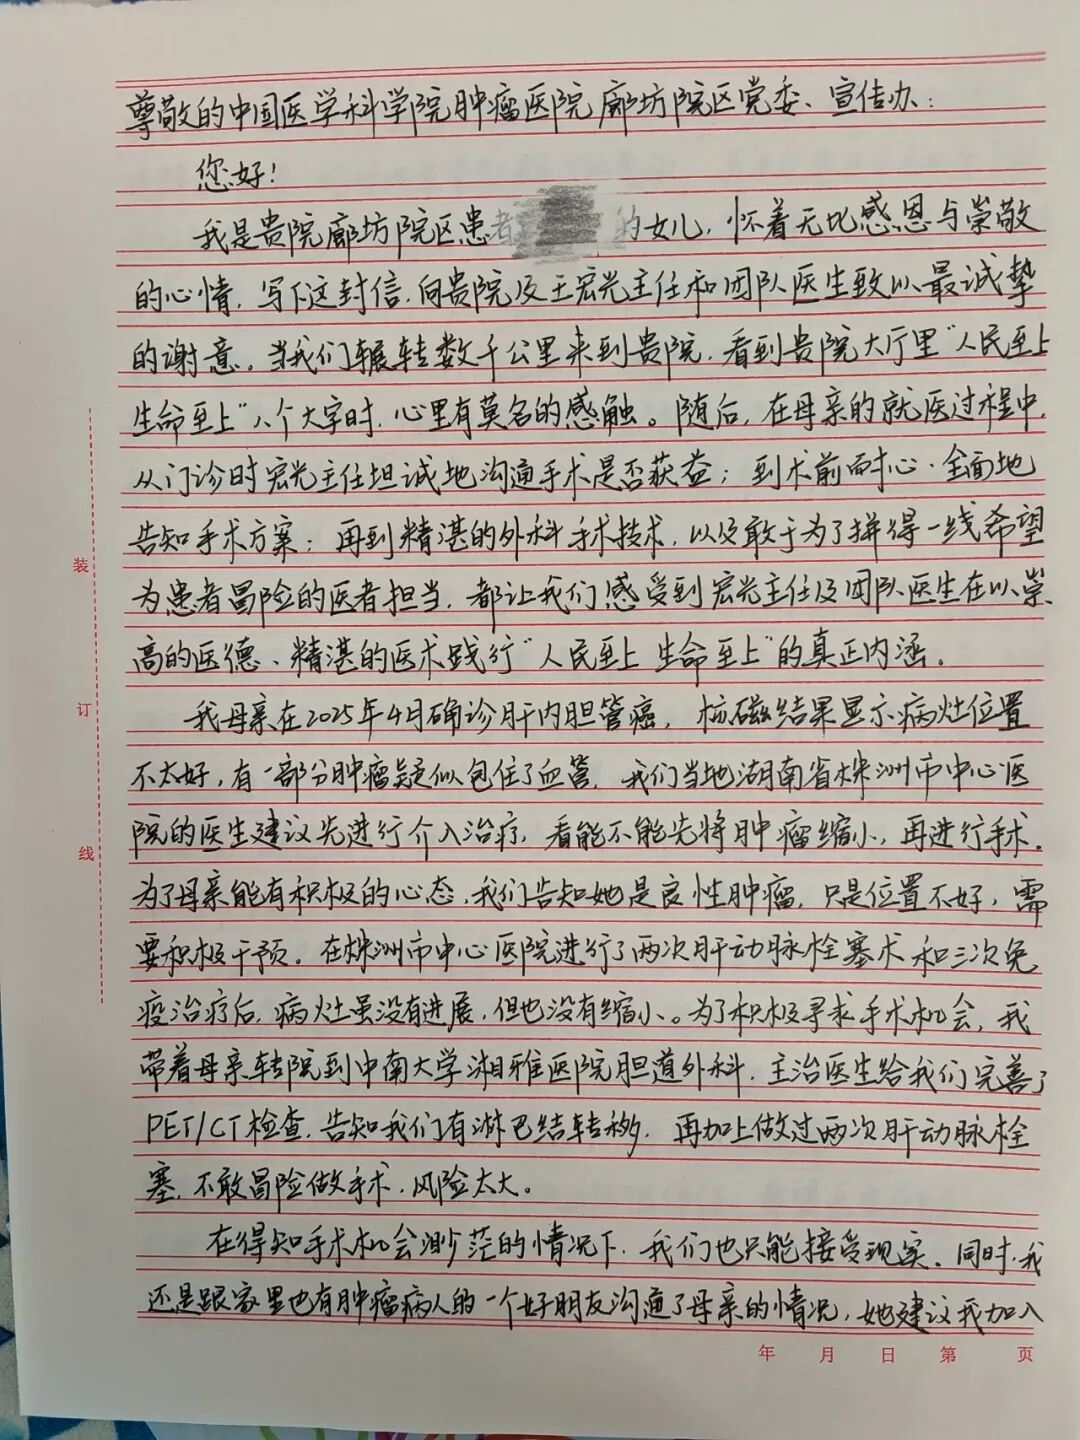 尊敬的中国医学科学院肿瘤医院廊坊院区党委、宣传办：
您好！
我是贵院廊坊院区患者的女儿，怀着无比感恩与崇敬
的心情，写下这封信，向贵院及王宏光主任和团队医生致以最诚挚
的谢意。当我们辗转数千公里来到贵院，看到贵院大厅里“人民至上
生命至上”八个大字时，心里有莫名的感触。随后，在母亲的就医过程中，
从门诊时宏光主任坦诚地沟通手术是否获益；到术前耐心、全面地
告知手术方案；再到精湛的外科手术技术，以及敢于为了拼得一线希望
为患者冒险的医者担当，都让我们感受到宏光主任及团队医生在以崇
高的医德、精湛的医术践行“人民至上 生命至上”的真正内涵。
我母亲在2025年4月确诊肝内胆管癌，核磁结果显示病灶位置
不太好，有一部分肿瘤疑似包住了血管，我们当地湖南省株洲市中心医
院的医生建议先进行介入治疗，看能不能先将肿瘤缩小，再进行手术。
为了母亲能有积极的心态，我们告知她是良性肿瘤，只是位置不好，需
要积极干预。在株洲市中心医院进行了两次肝动脉栓塞术和三次免
疫治疗后，病灶虽没有进展，但也没有缩小。为了积极寻求手术机会，我
带着母亲转院到中南大学湘雅医院胆道外科，主治医生给我们完善了
PET/CT检查，告知我们有淋巴结转移，再加上做过两次肝动脉栓
塞，不敢冒险做手术，风险太大。
在得知手术机会渺茫的情况下，我们也只能接受现实。同时，我
还是跟家里也有肿瘤病人的一个好朋友沟通了母亲的情况，她建议我加入
装
订
线
年 月 日 第 页